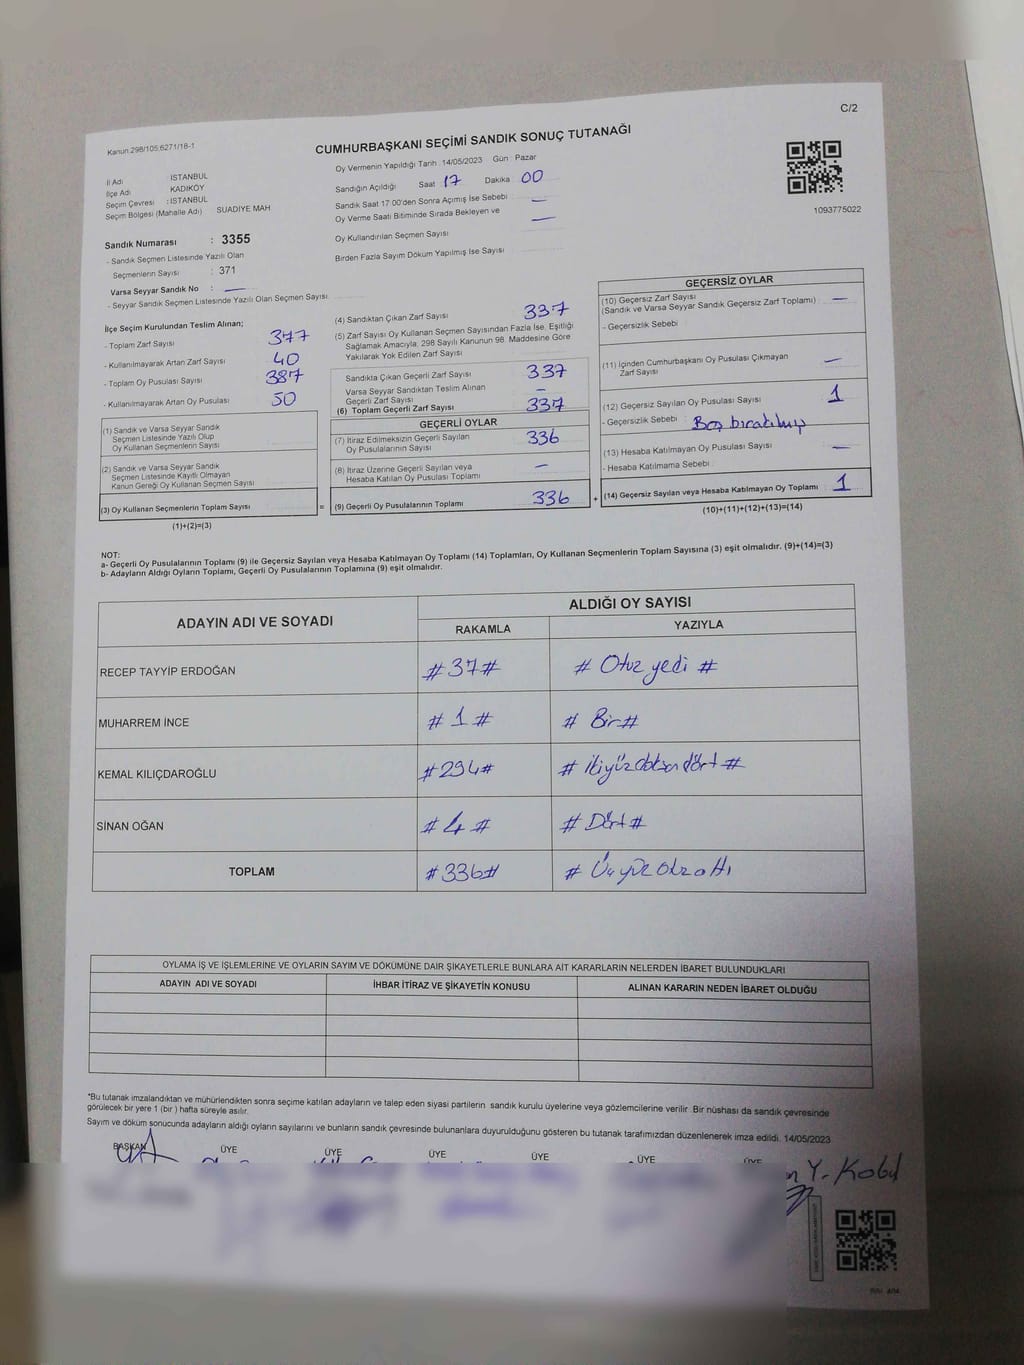 C/2
Kanun:298/105;6271/18-1
CUMHURBAŞKANI SEÇİMİ SANDIK SONUÇ TUTANAĞI
İl Adı İSTANBUL
İlçe Adı KADIKÖY
Seçim Çevresi : İSTANBUL
Seçim Bölgesi (Mahalle Adı) SUADİYE MAH
Oy Vermenin Yapıldığı Tarih :14/05/2023 Gün : Pazar
Sandığın Açıldığı Saat 17 Dakika 00
Sandık Saat 17.00'den Sonra Açımış İse Sebebi : —
Oy Verme Saati Bitiminde Sırada Bekleyen ve —
Oy Kullandırılan Seçmen Sayısı
Birden Fazla Sayım Döküm Yapılmış İse Sayısı
1093775022
Sandık Numarası : 3355
- Sandık Seçmen Listesinde Yazılı Olan
Seçmenlerin Sayısı : 371
Varsa Seyyar Sandık No : —
- Seyyar Sandık Seçmen Listesinde Yazılı Olan Seçmen Sayısı:
İlçe Seçim Kurulundan Teslim Alınan;
- Toplam Zarf Sayısı 377
- Kullanılmayarak Artan Zarf Sayısı 40
- Toplam Oy Pusulası Sayısı 387
- Kullanılmayarak Artan Oy Pusulası 50
(1) Sandık ve Varsa Seyyar Sandık
Seçmen Listesinde Yazılı Olup
Oy Kullanan Seçmenlerin Sayısı
(2) Sandık ve Varsa Seyyar Sandık
Seçmen Listesinde Kayıtlı Olmayan
Kanun Gereği Oy Kullanan Seçmen Sayısı
(3) Oy Kullanan Seçmenlerin Toplam Sayısı =
(1)+(2)=(3)
(4) Sandıktan Çıkan Zarf Sayısı 337
(5) Zarf Sayısı Oy Kullanan Seçmen Sayısından Fazla İse, Eşitliği
Sağlamak Amacıyla; 298 Sayılı Kanunun 98. Maddesine Göre
Yakılarak Yok Edilen Zarf Sayısı
Sandıkta Çıkan Geçerli Zarf Sayısı 337
Varsa Seyyar Sandıktan Teslim Alınan
Geçerli Zarf Sayısı —
(6) Toplam Geçerli Zarf Sayısı 337
GEÇERLİ OYLAR
(7) İtiraz Edilmeksizin Geçerli Sayılan
Oy Pusulalarının Sayısı 336
(8) İtiraz Üzerine Geçerli Sayılan veya
Hesaba Katılan Oy Pusulası Toplamı —
(9) Geçerli Oy Pusulalarının Toplamı 336 +
GEÇERSİZ OYLAR
(10) Geçersiz Zarf Sayısı
(Sandık ve Varsa Seyyar Sandık Geçersiz Zarf Toplamı) —
- Geçersizlik Sebebi
(11) İçinden Cumhurbaşkanı Oy Pusulası Çıkmayan
Zarf Sayısı —
(12) Geçersiz Sayılan Oy Pusulası Sayısı 1
- Geçersizlik Sebebi : Boş bırakılmış
(13) Hesaba Katılmayan Oy Pusulası Sayısı —
- Hesaba Katılmama Sebebi
(14) Geçersiz Sayılan veya Hesaba Katılmayan Oy Toplamı 1
(10)+(11)+(12)+(13)=(14)
NOT:
a- Geçerli Oy Pusulalarının Toplamı (9) ile Geçersiz Sayılan veya Hesaba Katılmayan Oy Toplamı (14) Toplamları, Oy Kullanan Seçmenlerin Toplam Sayısına (3) eşit olmalıdır. (9)+(14)=(3)
b- Adayların Aldığı Oyların Toplamı, Geçerli Oy Pusulalarının Toplamına (9) eşit olmalıdır.
ADAYIN ADI VE SOYADI
ALDIĞI OY SAYISI
RAKAMLA YAZIYLA
RECEP TAYYİP ERDOĞAN #37# # Otuz yedi #
MUHARREM İNCE # 1 # # Bir #
KEMAL KILIÇDAROĞLU #294# # İkiyüzdoksandört #
SİNAN OĞAN # 4 # # Dört #
TOPLAM #336# # Üçyüzotuzaltı
OYLAMA İŞ VE İŞLEMLERİNE VE OYLARIN SAYIM VE DÖKÜMÜNE DAİR ŞİKAYETLERLE BUNLARA AİT KARARLARIN NELERDEN İBARET BULUNDUKLARI
ADAYIN ADI VE SOYADI İHBAR İTİRAZ VE ŞİKAYETİN KONUSU ALINAN KARARIN NEDEN İBARET OLDUĞU
*Bu tutanak imzalandıktan ve mühürlendikten sonra seçime katılan adayların ve talep eden siyasi partilerin sandık kurulu üyelerine veya gözlemcilerine verilir. Bir nüshası da sandık çevresinde
görülecek bir yere 1 (bir ) hafta süreyle asılır.
Sayım ve döküm sonucunda adayların aldığı oyların sayılarını ve bunların sandık çevresinde bulunanlara duyurulduğunu gösteren bu tutanak tarafımızdan düzenlenerek imza edildi. 14/05/2023
BAŞKAN ÜYE ÜYE ÜYE ÜYE ÜYE ÜYE